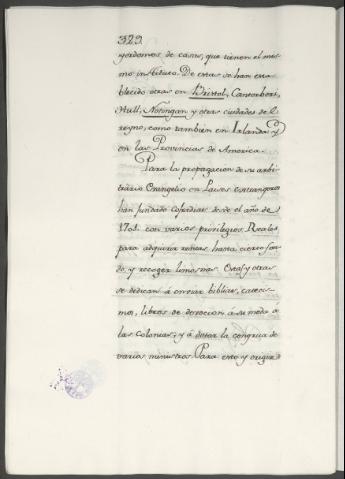 329.
yordomos de casas, que tienen el mis-
mo instituto. De estas se han esta
blecido otras en Bristol, Cantorberi,
Hull, Notingan y otras ciudades de l
reyno, como tambien en Irlanda, y
en las Provincias de America.
Para la propagacion de su arbi
trario Evangelio en Paises estrangeros
han fundado Cofradias desde el año de
1701. con varios privilegios Reales
para adquirir rentas hasta cierto fon
do, y recoger limosnas. Estas y otras
se dedican á enviar biblias, catecis
mos, libros de devocion a su moda á
las Colonias, y á dotar la congrua de
varios ministros Para esto y erigir